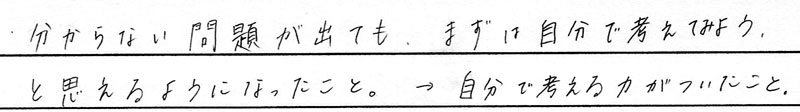 ・分からない問題が出ても、まずは自分で考えてみよう、
と思えるようになったこと。→自分で考える力がついたこと。